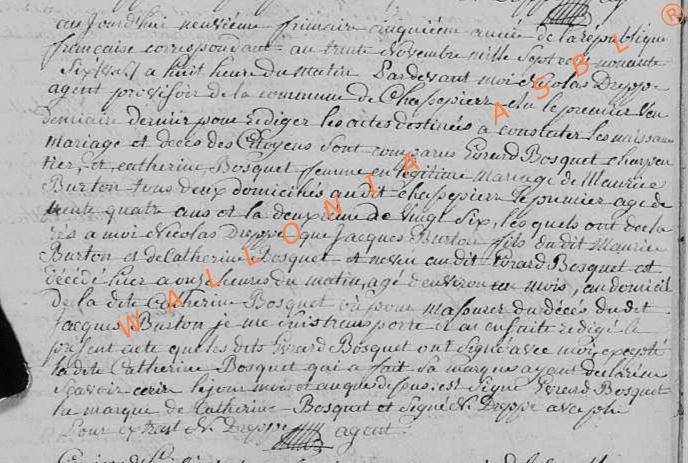 aujourd'hui neuvième frimaire cinquième année de la république
française correspondant au trente novembre mille Sept cent nonante
Six a huit heure du Matin Pardevant moi Nicolas Dreppe
agent provisoir de la commune de Chassepierre elu le premier Ven
demiaire dernier pour rediger les actes destinés a constater les naissan
Mariage et deces des Citoyens Sont comparus Evrard Bosquet charpen
tier, et catherine Bosquet femme en légitime Mariage de Maurice
Burton tous deux domiciliés audit chassepierre le premier age de
trente quatre ans et la deuxieme de vingt Six, les quels ont decla
rés a moi Nicolas Dreppe que Jacques Burton fils du dit Maurice
Burton et de Catherine Bosquet et neveu audit Evrard Bosquet est
décédé hier a onze heures du matin, agé d'environ un mois, au domicil
De la dite Catherine Bosquet où pour M'assurer du décés du dit
Jacques Burton je me suis transporté et ai ensuite redigé le
présent acte que les dits Evrard Bosquet ont Signé avec moi excepté
la dite Catherine Bosquet qui a fait Sa marque ayant declaré ne
Scavoir ecrire le jour mois et an que dessus, est Signé Evrard Bosquet
la marque de Catherine Bosquet et Signé N Dreppe avec
Pour extrait N Dreppe agent
WALLONIA ASBL ®